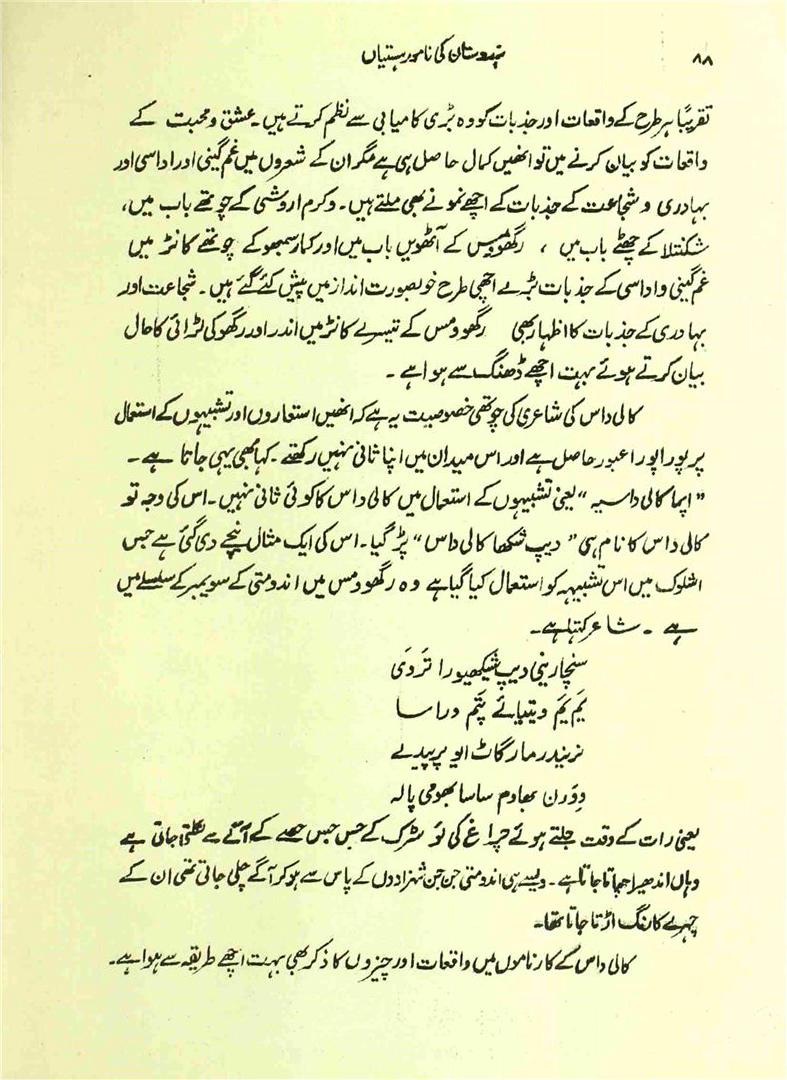 ۸۸
ہندوستان کی نامور ہستیاں
تقریباً ہر طرح کے واقعات اور جذبات کو وہ بڑی کامیابی سے نظم کرتے ہیں۔ عشق و محبت کے
واقعات کو بیان کرنے میں تو انھیں کمال حاصل ہی ہے مگر ان کے شعروں میں غم گینی اور اداسی اور
بہادری و شجاعت کے جذبات کے اچھے نمونے بھی ملتے ہیں۔ وکرم اروشی کے چوتھے باب میں،
شکنتلا کے چھٹے باب میں ، رگھوومس کے آٹھویں باب میں اور کمار سمبھو کے چوتھے کانڑ میں
غم گینی و اداسی کے جذبات بڑے اچھی طرح خوبصورت انداز میں پیش کئے گئے ہیں۔ شجاعت اور
بہادری کے جذبات کا اظہار بھی رگھوومس کے تیسرے کانڑ میں اندر اور رگھو کی لڑائی کا حال
بیان کرتے ہوئے بہت اچھے ڈھنگ سے ہوا ہے ۔
کالی داس کی شاعری کی چوتھی خصوصیت یہ ہے کہ انھیں استعاروں اور تشبیہوں کے استعمال
پر پورا پورا عبور حاصل ہے اور اس میدان میں اپنا ثانی نہیں رکھتے ۔ کہا بھی یہی جاتا ہے ۔
” اپما کالی داسیہ “ یعنی تشبیہوں کے استعمال میں کالی داس کا کوئی ثانی نہیں ۔ اس کی وجہ تو
کالی داس کا نام ہی ” دیپ شکھا کالی داس “ پڑ گیا۔ اس کی ایک مثال نیچے دی گئی ہے جس
اشلوک میں اس تشبیہہ کو استعمال کیا گیا ہے وہ رگھوومس میں اندومتی کے سویمبر کے سلسلے میں
ہے ۔ شاعر کہتا ہے۔
سنچارینی دیپ شیکھیورا تردَی
یَم یَم ویتیائے پَتَم وراسا
نریندر مارگاٹ ایو پرپیدے
وِوَرن بھاوم ساسا بھومی پالہ
یعنی رات کے وقت جلتے ہوئے چراغ کی لَو سڑک کے جس جس حصے کے آگے سے نکلتی جاتی ہے
وہاں اندھیرا چھاتا جاتا ہے۔ ویسے ہی اندومتی جن جن شہزادوں کے پاس سے ہو کر آگے چلی جاتی تھی ان کے
چہرے کا رنگ اڑتا جاتا تھا۔
کالی داس کے کارناموں میں واقعات اور چیزوں کا ذکر بھی بہت اچھے طریقہ سے ہوا ہے۔